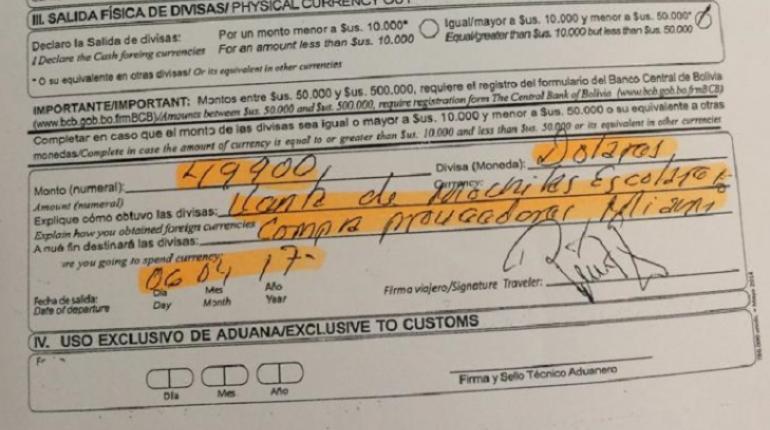 III. SALIDA FÍSICA DE DIVISAS/ PHYSICAL CURRENCY OUT
Declaro la Salida de divisas: Por un monto menor a $us. 10.000* Igual/mayor a $us. 10.000 y menor a $us. 50.000*
I Declare the Cash foreing currencies For an amount less than $us. 10.000 Equal/greater than $us. 10.000 but less than $us. 50.000
* O su equivalente en otras divisas/ Or its equivalent in other currencies
IMPORTANTE/IMPORTANT: Montos entre $us. 50.000 y $us. 500.000, requiere el registro del formulario del Banco Central de Bolivia
(www.bcb.gob.bo/frmBCB)/Amounts between $us. 50.000 and $us. 500.000, require registration form The Central Bank of Bolivia (www.bcb.gob.bo/frmBCB)
Completar en caso que el monto de las divisas sea igual o mayor a $us. 10.000 y menor a $us. 50.000 o su equivalente a otras
monedas/Complete in case the amount of currency is equal to or greater than $us. 10.000 and less than $us. 50.000 or its equivalent in other currencies
Monto (numeral): 49900, Divisa (Moneda): Dolares
Amount (numeral) Currency:
Explique cómo obtuvo las divisas: Vanta de Mochilas Escolares
Explain how you obtained foreign currencies
A qué fin destinará las divisas: Compra proveedores Miami
are you going to spend currency:
06 04 17
Fecha de salida: Día Mes Año Firma viajero/Signature Traveler:
Date of departure Day Month Year
IV. USO EXCLUSIVO DE ADUANA/EXCLUSIVE TO CUSTOMS
Día Mes Año Firma y Sello Técnico Aduanero